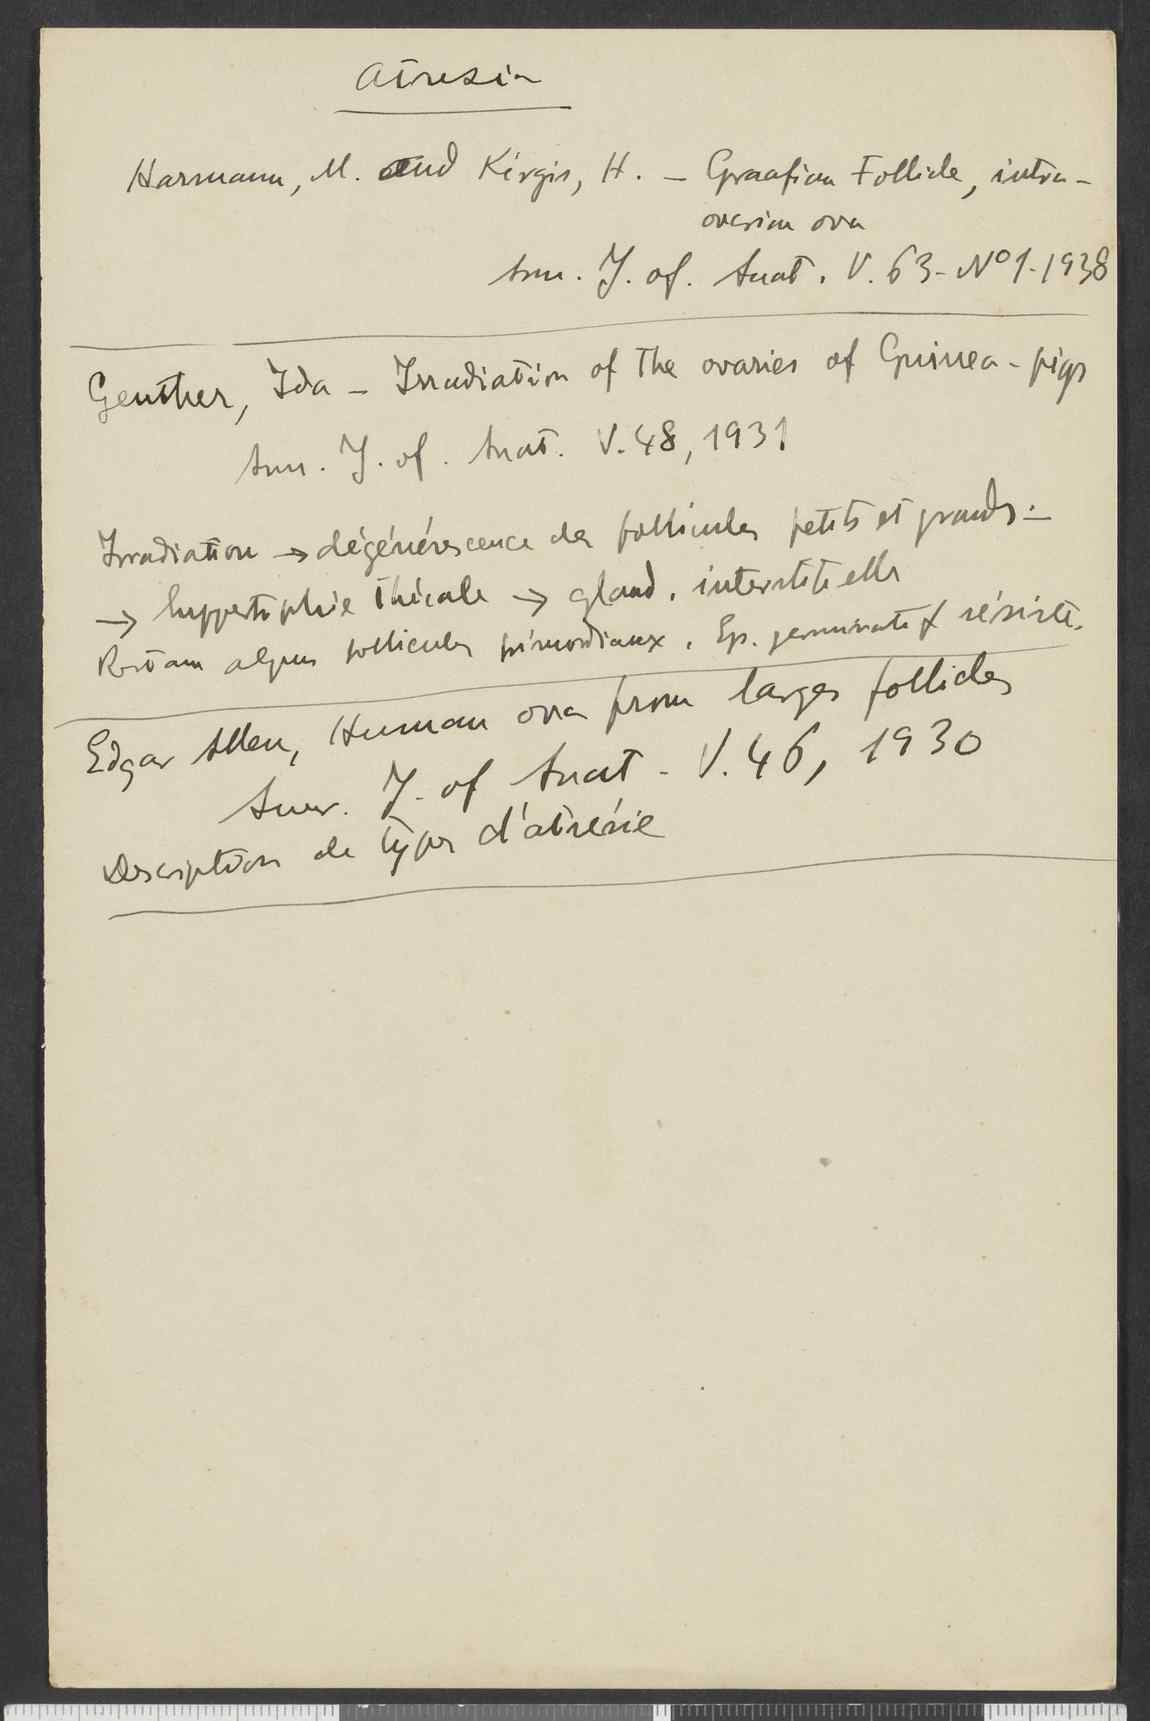 Atresia
Harmann, M. and Kirgis, H. – Graafian Follicle, intra-
ovarian ova
Am. J. of. Anat. V. 63 - No 1 - 1938
Genther, Ida – Irradiation of the ovaries of Guinea-pigs
Am. J. of. Anat. V. 48, 1931
Irradiation → dégénérescence des follicules petits et grands. –
→ hyppertrophie thécale → gland. interstitielle
Restam alguns follicules primordiaux. Ep. germinatif résiste.
Edgar Allen, Human ova from larges follicles
Amer. J. of Anat - V. 46, 1930
Description de types d'atrésie